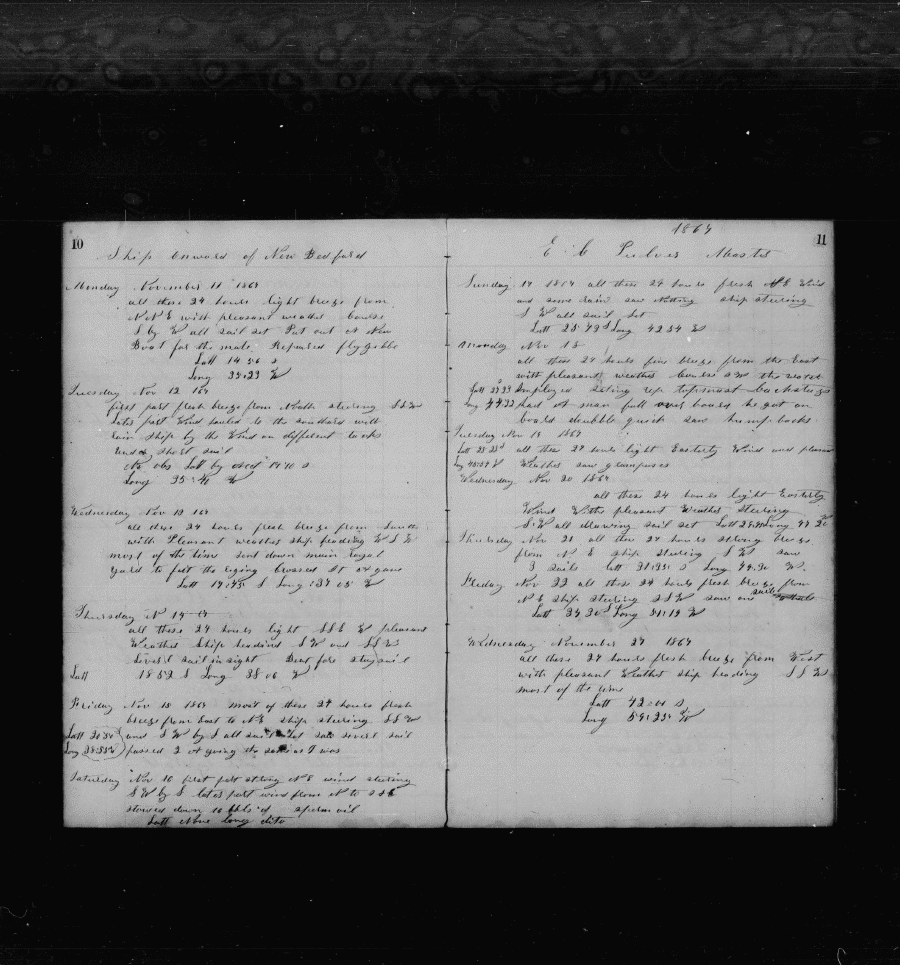 10
Ship Onward of New Bedford
Monday November 11 1864
all these 24 hours light breeze from
N N E with pleasant weather Course
S by W all sail set Put out A New
Boat for the mate Repaired flygibbe
Latt 14 56 S
Long 33:23 W
Tuesday Nov 12 164
first part fresh breeze from North steering SSW
later part Wind hauled to the southard with
rain ship by the Wind on different tacks
under short sail
No obs Latt by 17 10 S
Long 35:41 W
Wednesday Nov 13 164
all these 24 hours fresh breeze from
with Pleasant weather ship heading W S W
most of the time sent down main royal
yard to fitt the riging Crossed It again
Latt 17:43 S Long :37 05 W
Thursday N 14
all these 24 hours light SSE W pleasant
Weather Ship heading S W and SSW
Severl sail in sight Bent fore staysail
Latt 18 52 S Long 38 06 W
Friday Nov 15 1864 most of these 24 hours fresh
breeze from East to N E ship steering SSW
Latt 20 50 and S W by S all sail set saw severl sail
Long 38:53 W passed 2 A going the same as I was
Saturday Nov 16 first part strong N E wind steering
S W by S later part wind from N to
stowed down 10 bbls of sperm oil
Latt None Long dito
1864
11
E C Master
Sunday 17 1864 all these 24 hours fresh N E Wind
and some rain saw Nothing ship steering
S W all sail set
Latt 25:43 S Long 42 54 W
Monday Nov 18
all these 24 hours fine breeze from the East
with pleasant weather Course S W the
Latt Employed seting up topmast backstays
Long had A man fall over board he got on
board double quick saw humpbacks
Tuesday Nov 19 1864
Latt all these 24 hours light Easterly Wind and pleasant
Long Weather saw grampuses
Wednesday Nov 20 1864
all these 24 hours light Easterly
Wind With pleasant Weather steering
S:W all drawing sail set Latt Long
Thursday Nov 21 all these 24 hours strong breeze
from N E ship steering S W saw
3 sails Latt 31:35 S Long 49.30 W.
Friday Nov 22 all these 24 hours fresh breeze from
N E ship steering SSW saw one sail
Latt 34 30 S Long 51:19 W
Wednesday November 27 1864
all these 24 hours fresh breeze from West
with pleasant Weather ship heading SSW
most of the time
Latt 42:01 S
Long 59:23 W